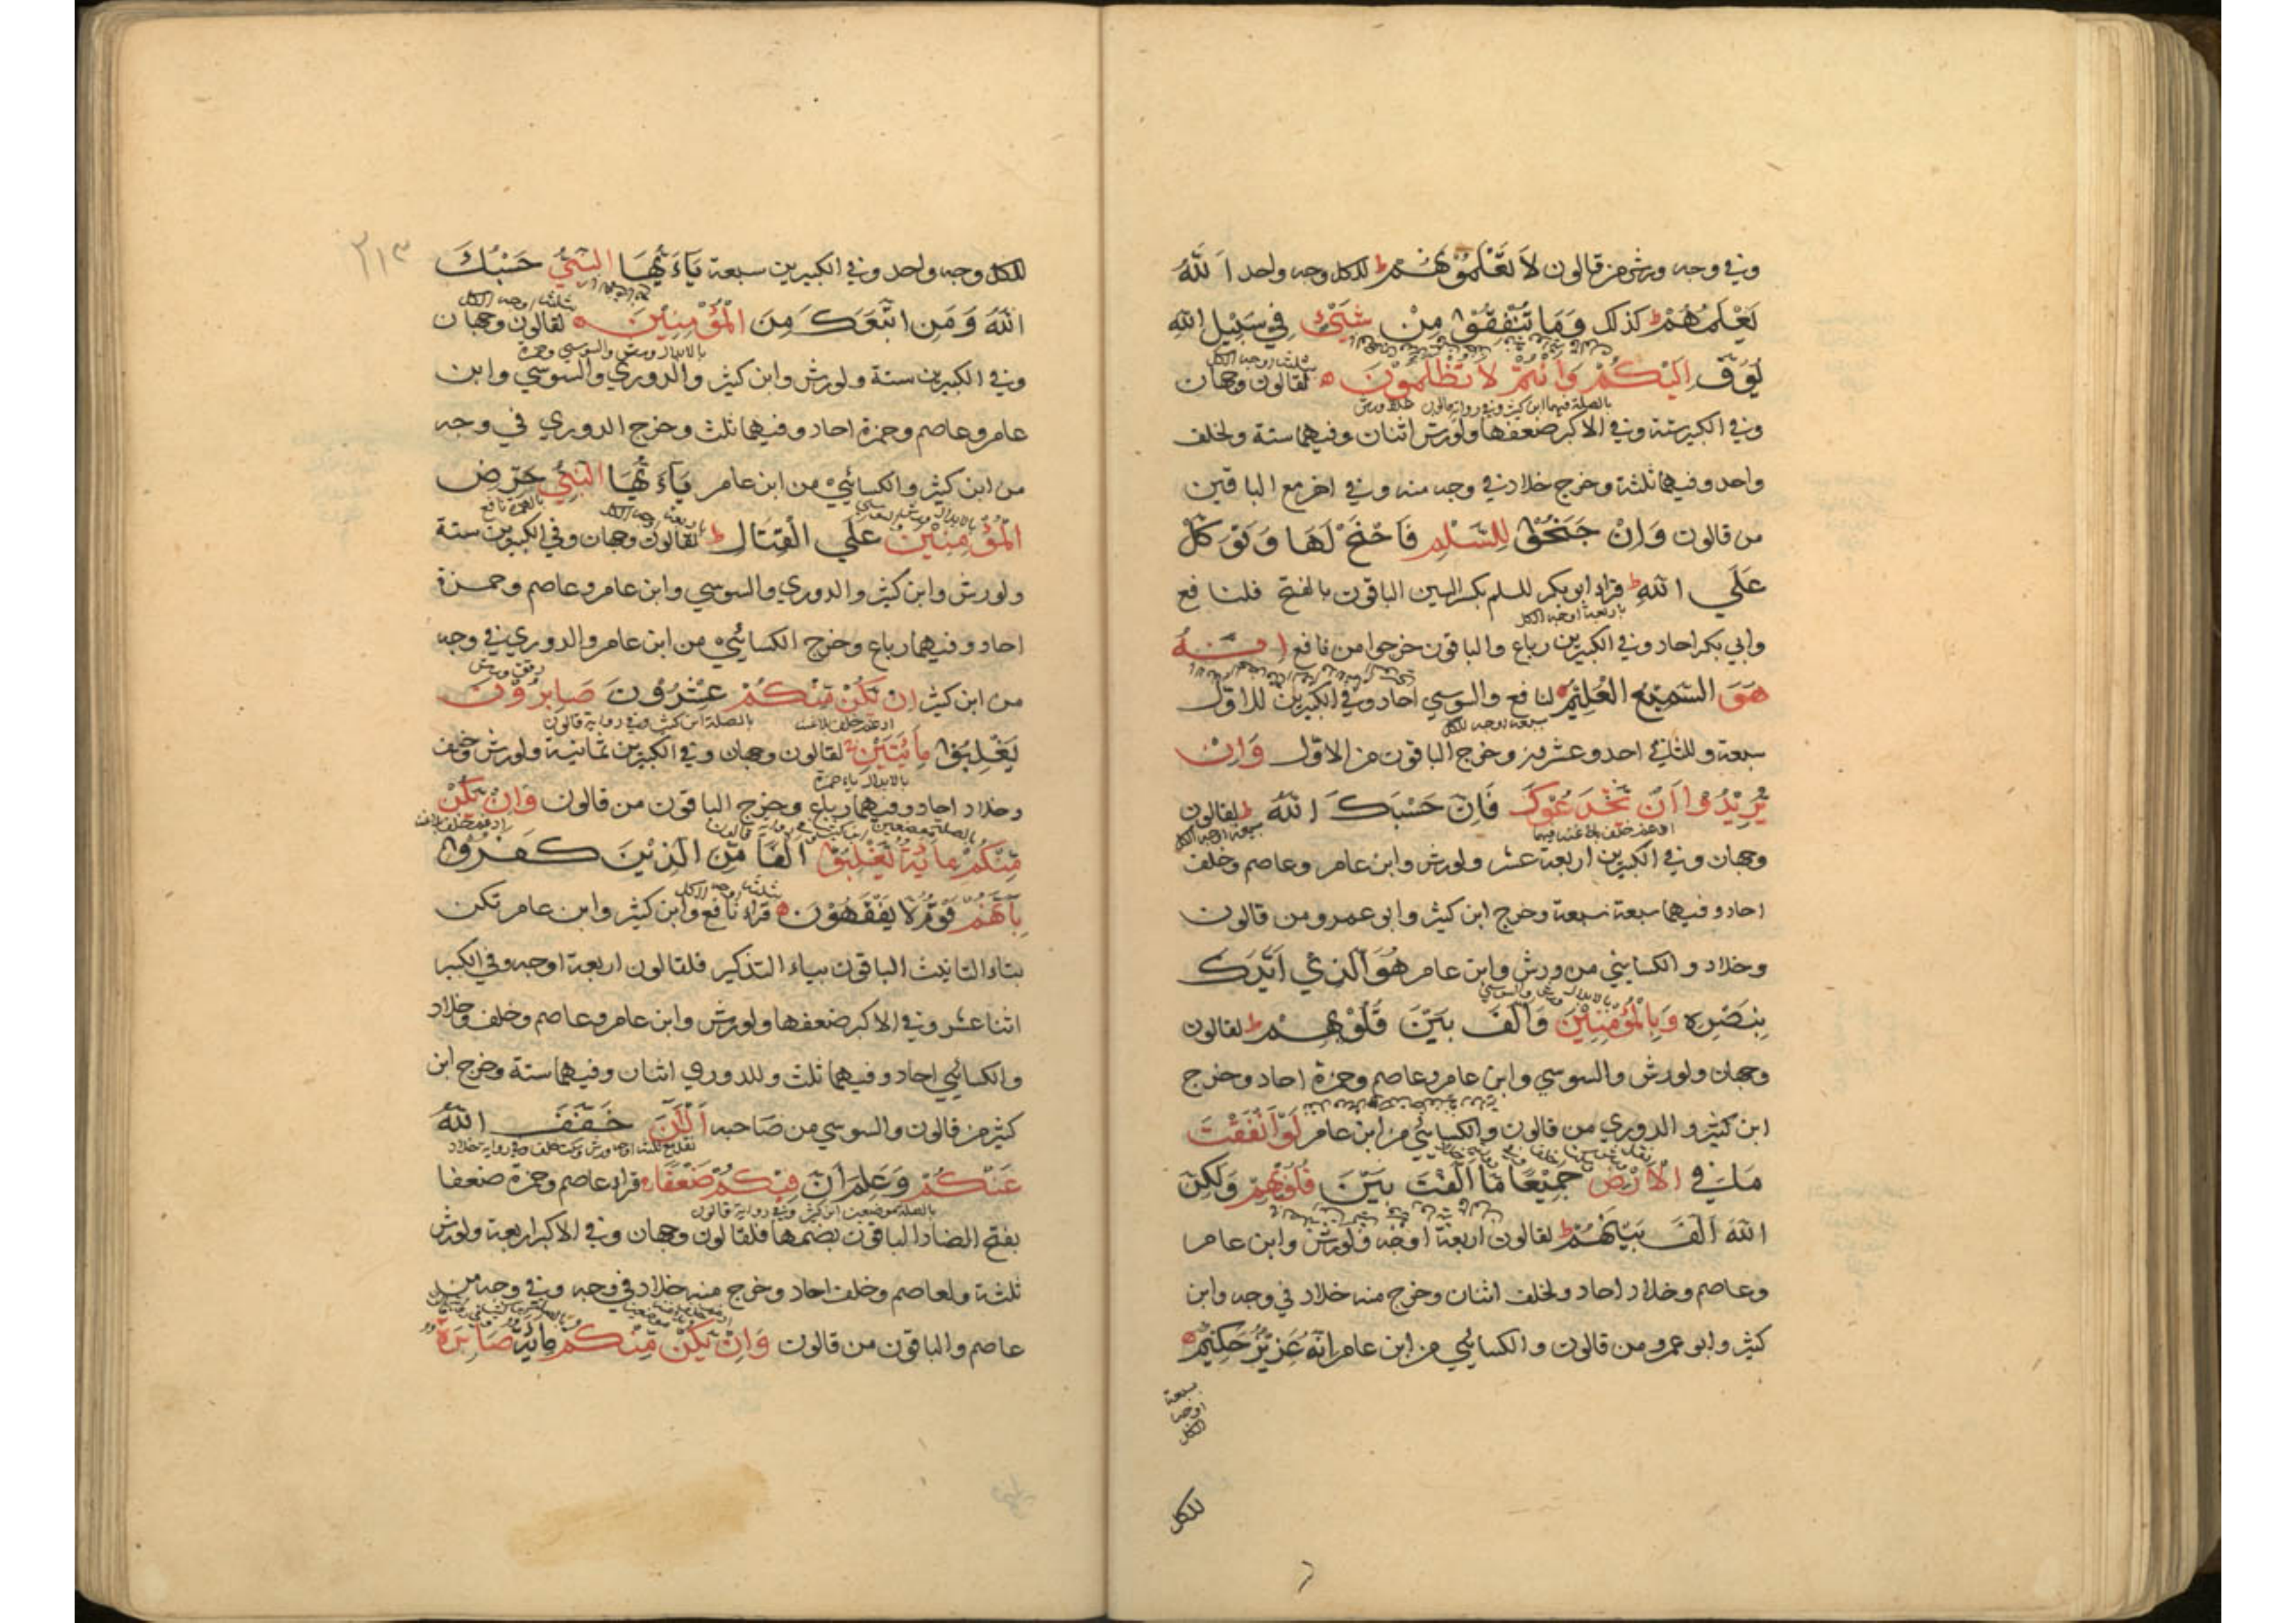 وفي وجه ورش من قالون لَا تَعْلَمُوْنَهُمْ ط للكل وجه واحد اَللّٰهُ
يَعْلَمُهُمْ ط كذلك وَمَا تُنْفِقُوْا مِنْ شَيْءٍ فِي سَبِيْلِ اللّٰهِ
يُوَفَّ اِلَيْكُمْ وَاَنْتُمْ لَا تُظْلَمُوْنَ ه لقالون وجهان
ثلثة اوجه للكل
بالصلة فيهما ابن كثير وفي رواية قالون
وفي الكبير ستة وفي الاكبر ضعفها ولورش اثنان وفيهما ستة ولخلف
واحد وفيهما ثلثة وخرج خلاد في وجه منه وفي اخر مع الباقين
من قالون وَاِنْ جَنَحُوْا لِلسَّلْمِ فَاجْنَحْ لَهَا وَتَوَكَّلْ
عَلَي اللّٰهِ ط قراء ابو بكر للسلم بكسر السين الباقون بالفتح فلنافع
باربعة اوجه للكل
وابي بكر احاد وفي الكبيرين رباع والباقون خرجوا من نافع اِنَّهُ
هُوَ السَّمِيْعُ الْعَلِيْمُ ه لنافع والسوسي احاد وفي الكبيرين للاول
سبعة اوجه للكل
سبعة وللثاني احد وعشرون وخرج الباقون من الاول وَاِنْ
يُرِيْدُوْا اَنْ يَّخْدَعُوْكَ فَاِنَّ حَسْبَكَ اللّٰهُ ط لقالون
ادغم خلف بلا غنة فيهما
وجهان وفي الكبيرين اربعة عشر ولورش وابن عامر وعاصم وخلف
احاد وفيهما سبعة سبعة وخرج ابن كثير وابو عمرو من قالون
وخلاد والكسايئي من ورش وابن عامر هُوَ الَّذِي اَيَّدَكَ
بالابدال ورش والسوسي
بِنَصْرِهِ وَبِالْمُؤْمِنِيْنَ وَاَلَّفَ بَيْنَ قُلُوْبِهِمْ ط لقالون
وجهان ولورش والسوسي وابن عامر وعاصم وحمزة احاد وخرج
ابن كثير والدوري من قالون والكسايئي من ابن عامر لَوْ اَنْفَقْتَ
مَا فِي الْاَرْضِ جَمِيْعًا مَّا اَلَّفْتَ بَيْنَ قُلُوْبِهِمْ وَلٰكِنَّ
اللّٰهَ اَلَّفَ بَيْنَهُمْ ط لقالون اربعة اوجه ولورش وابن عامر
وعاصم وخلاد احاد ولخلف اثنان وخرج منه خلاد في وجه وابن
كثير وابو عمرو من قالون والكسايئي من ابن عامر اِنَّهُ عَزِيْزٌ حَكِيْمٌ ه
سبعة
اوجه
للكل
للكل
٢١٣
للكل وجه واحد وفي الكبيرين سبعة يَاءَيُّهَا النَّبِيُّ حَسْبُكَ
ثلثة اوجه للكل
اللّٰهُ وَمَنِ اتَّبَعَكَ مِنَ الْمُؤْمِنِيْنَ ه لقالون وجهان
بالابدال ورش والسوسي وحمزة
وفي الكبيرين ستة ولورش وابن كثير والدوري والسوسي وابن
عامر وعاصم وحمزة احاد وفيهما ثلث وخرج الدوري في وجه
من ابن كثير والكسايئي من ابن عامر يَاءَيُّهَا النَّبِيُّ حَرِّضِ
الْمُؤْمِنِيْنَ عَلَي الْقِتَالِ ط لقالون وجهان وفي الكبيرين ستة
ولورش وابن كثير والدوري والسوسي وابن عامر وعاصم وحمزة
احاد وفيهما رباع وخرج الكسايئي من ابن عامر والدوري في وجه
رقق ورش
من ابن كثير اِنْ يَّكُنْ مِّنْكُمْ عِشْرُوْنَ صَابِرُوْنَ
بالصلة ابن كثير وفي رواية قالون
ادغم خلف بلا غنة
يَغْلِبُوْا مِائَتَيْنِ لقالون وجهان وفي الكبيرين ثمانية ولورش وخلف
بالابدال ياء حمزة
وخلاد احاد وفيهما رباع وخرج الباقون من قالون وَاِنْ يَّكُنْ
مِّنْكُمْ مِائَةٌ يَّغْلِبُوْا اَلْفًا مِّنَ الَّذِيْنَ كَفَرُوْا
بِاَنَّهُمْ قَوْمٌ لَا يَفْقَهُوْنَ ه قراء نافع وابن كثير وابن عامر تكن
بتاء التانيث الباقون بياء التذكير فلقالون اربعة اوجه وفي الكبير
اثنا عشر وفي الاكبر ضعفها ولورش وابن عامر وعاصم وخلف وخلاد
والكسايئي احاد وفيهما ثلث وللدوري اثنان وفيهما ستة وخرج ابن
كثير من قالون والسوسي من صاحبه اَلْاٰنَ خَفَّفَ اللّٰهُ
عَنْكُمْ وَعَلِمَ اَنَّ فِيْكُمْ ضَعْفًا ط قراء عاصم وحمزة ضعفا
بالصلة موضعين ابن كثير وفي رواية قالون
بفتح الضاد الباقون بضمها فلقالون وجهان وفي الاكبر اربعة ولورش
ثلثة ولعاصم وخلف احاد وخرج منه خلاد في وجه وفي وجه من
عاصم والباقون من قالون وَاِنْ يَّكُنْ مِّنْكُمْ مِائَةٌ صَابِرَةٌ